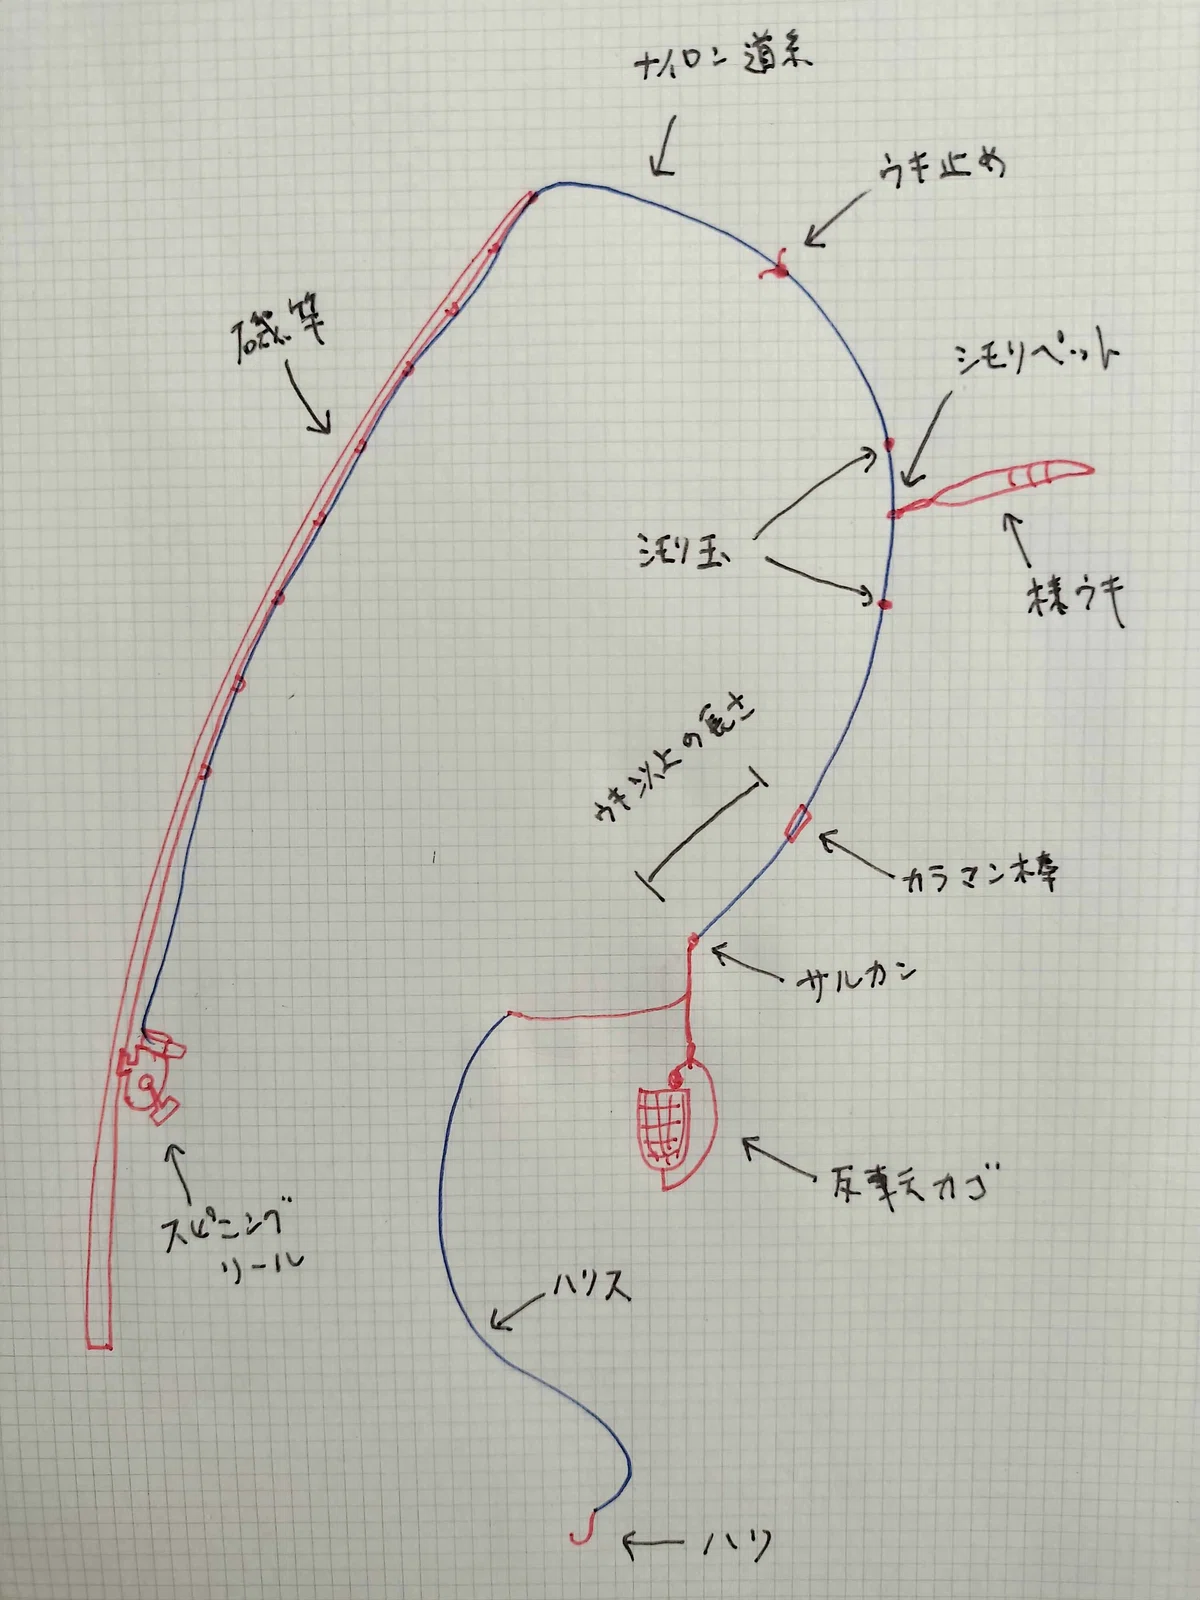 ナイロン道糸
ウキ止め
磯竿
シモリペット
シモリ玉
棒ウキ
ウキ以上の長さ
カラマン棒
サルカン
反転カゴ
スピニング
リール
ハリス
ハリ